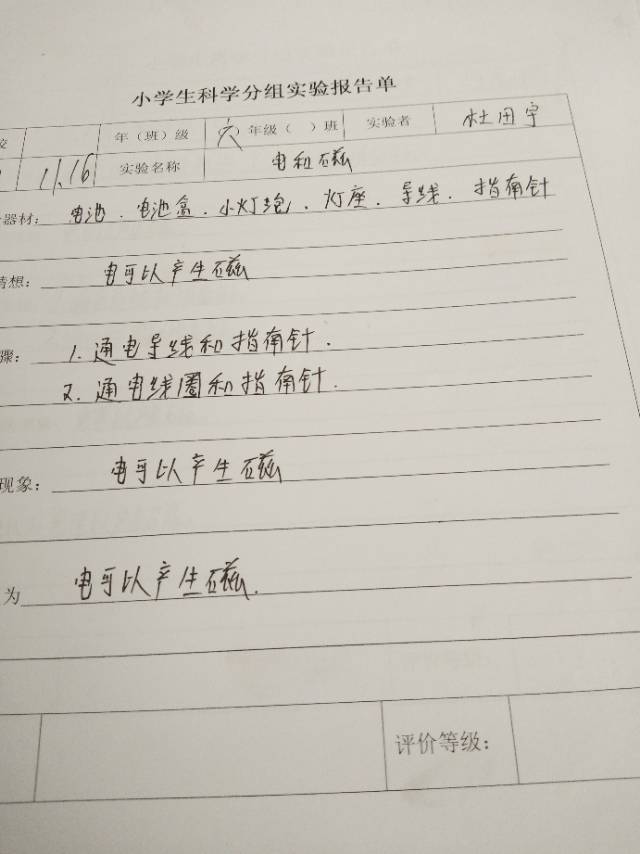 小学生科学分组实验报告单
校 年（班）级 六年级（ ）班 实验者 杜田宇
11.16 实验名称 电和磁
器材： 电池．电池盒．小灯泡．灯座．导线．指南针
猜想： 电可以产生磁
骤： 1. 通电导线和指南针．
2. 通电线圈和指南针．
现象： 电可以产生磁
为 电可以产生磁．
评价等级：